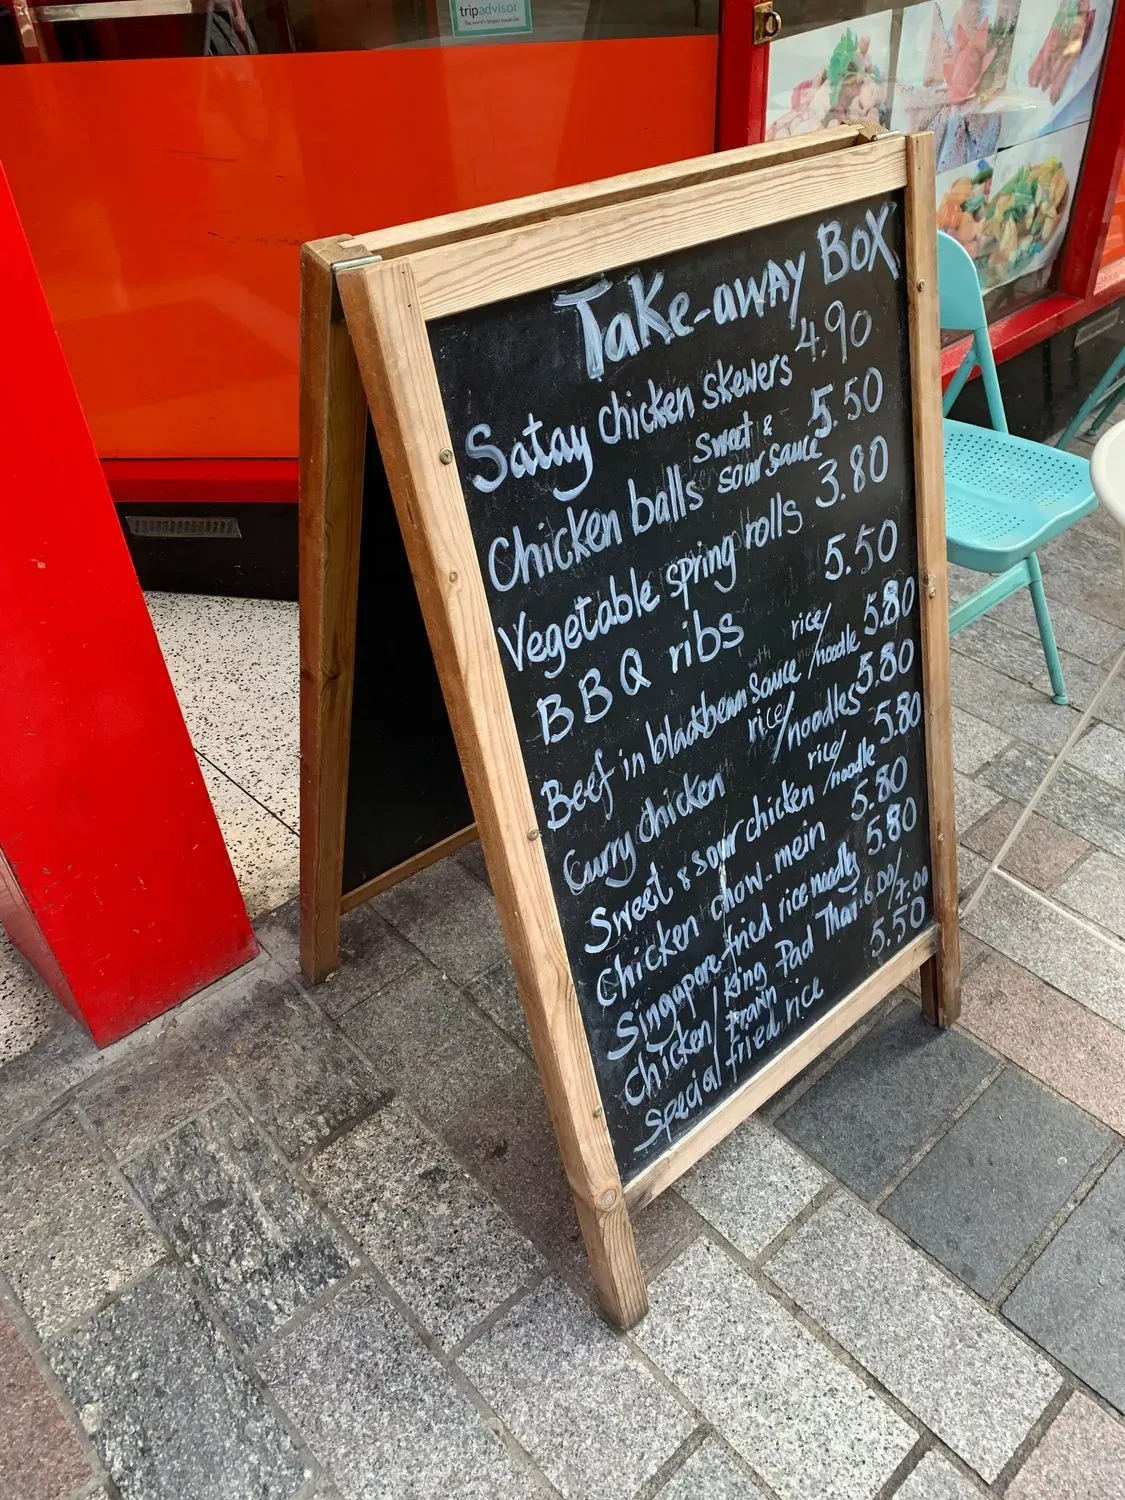 tripadvisor
Take-away BOX
Satay chicken skewers 4.90
Chicken balls sweet & sour sauce 5.50
Vegetable spring rolls 3.80
BBQ ribs 5.50
Beef in blackbean sauce with rice/noodle 5.80
Curry chicken rice/noodles 5.80
Sweet & sour chicken rice/noodle 5.80
Chicken chow. mein 5.80
Singapore fried rice noodly 5.80
Chicken/King Prawn Pad Thai. 6.00/7.00
Special fried rice 5.50